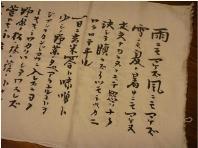 雨ニモマケズ風ニモマケズ
雪ニモ夏ノ暑サニモマケヌ
丈夫ナカラダヲモチ慾ハナク
決シテ瞋ラズイツモシヅカニ
ワラッテヰル
一日ニ玄米四合ト味噌ト
少シノ野菜ヲタベアラユルコトヲ
ジブンヲカンジョウニ入レズニヨク
ミキキシワカリソシテワスレズ
野原ノ松ノ林ノ蔭ノ小